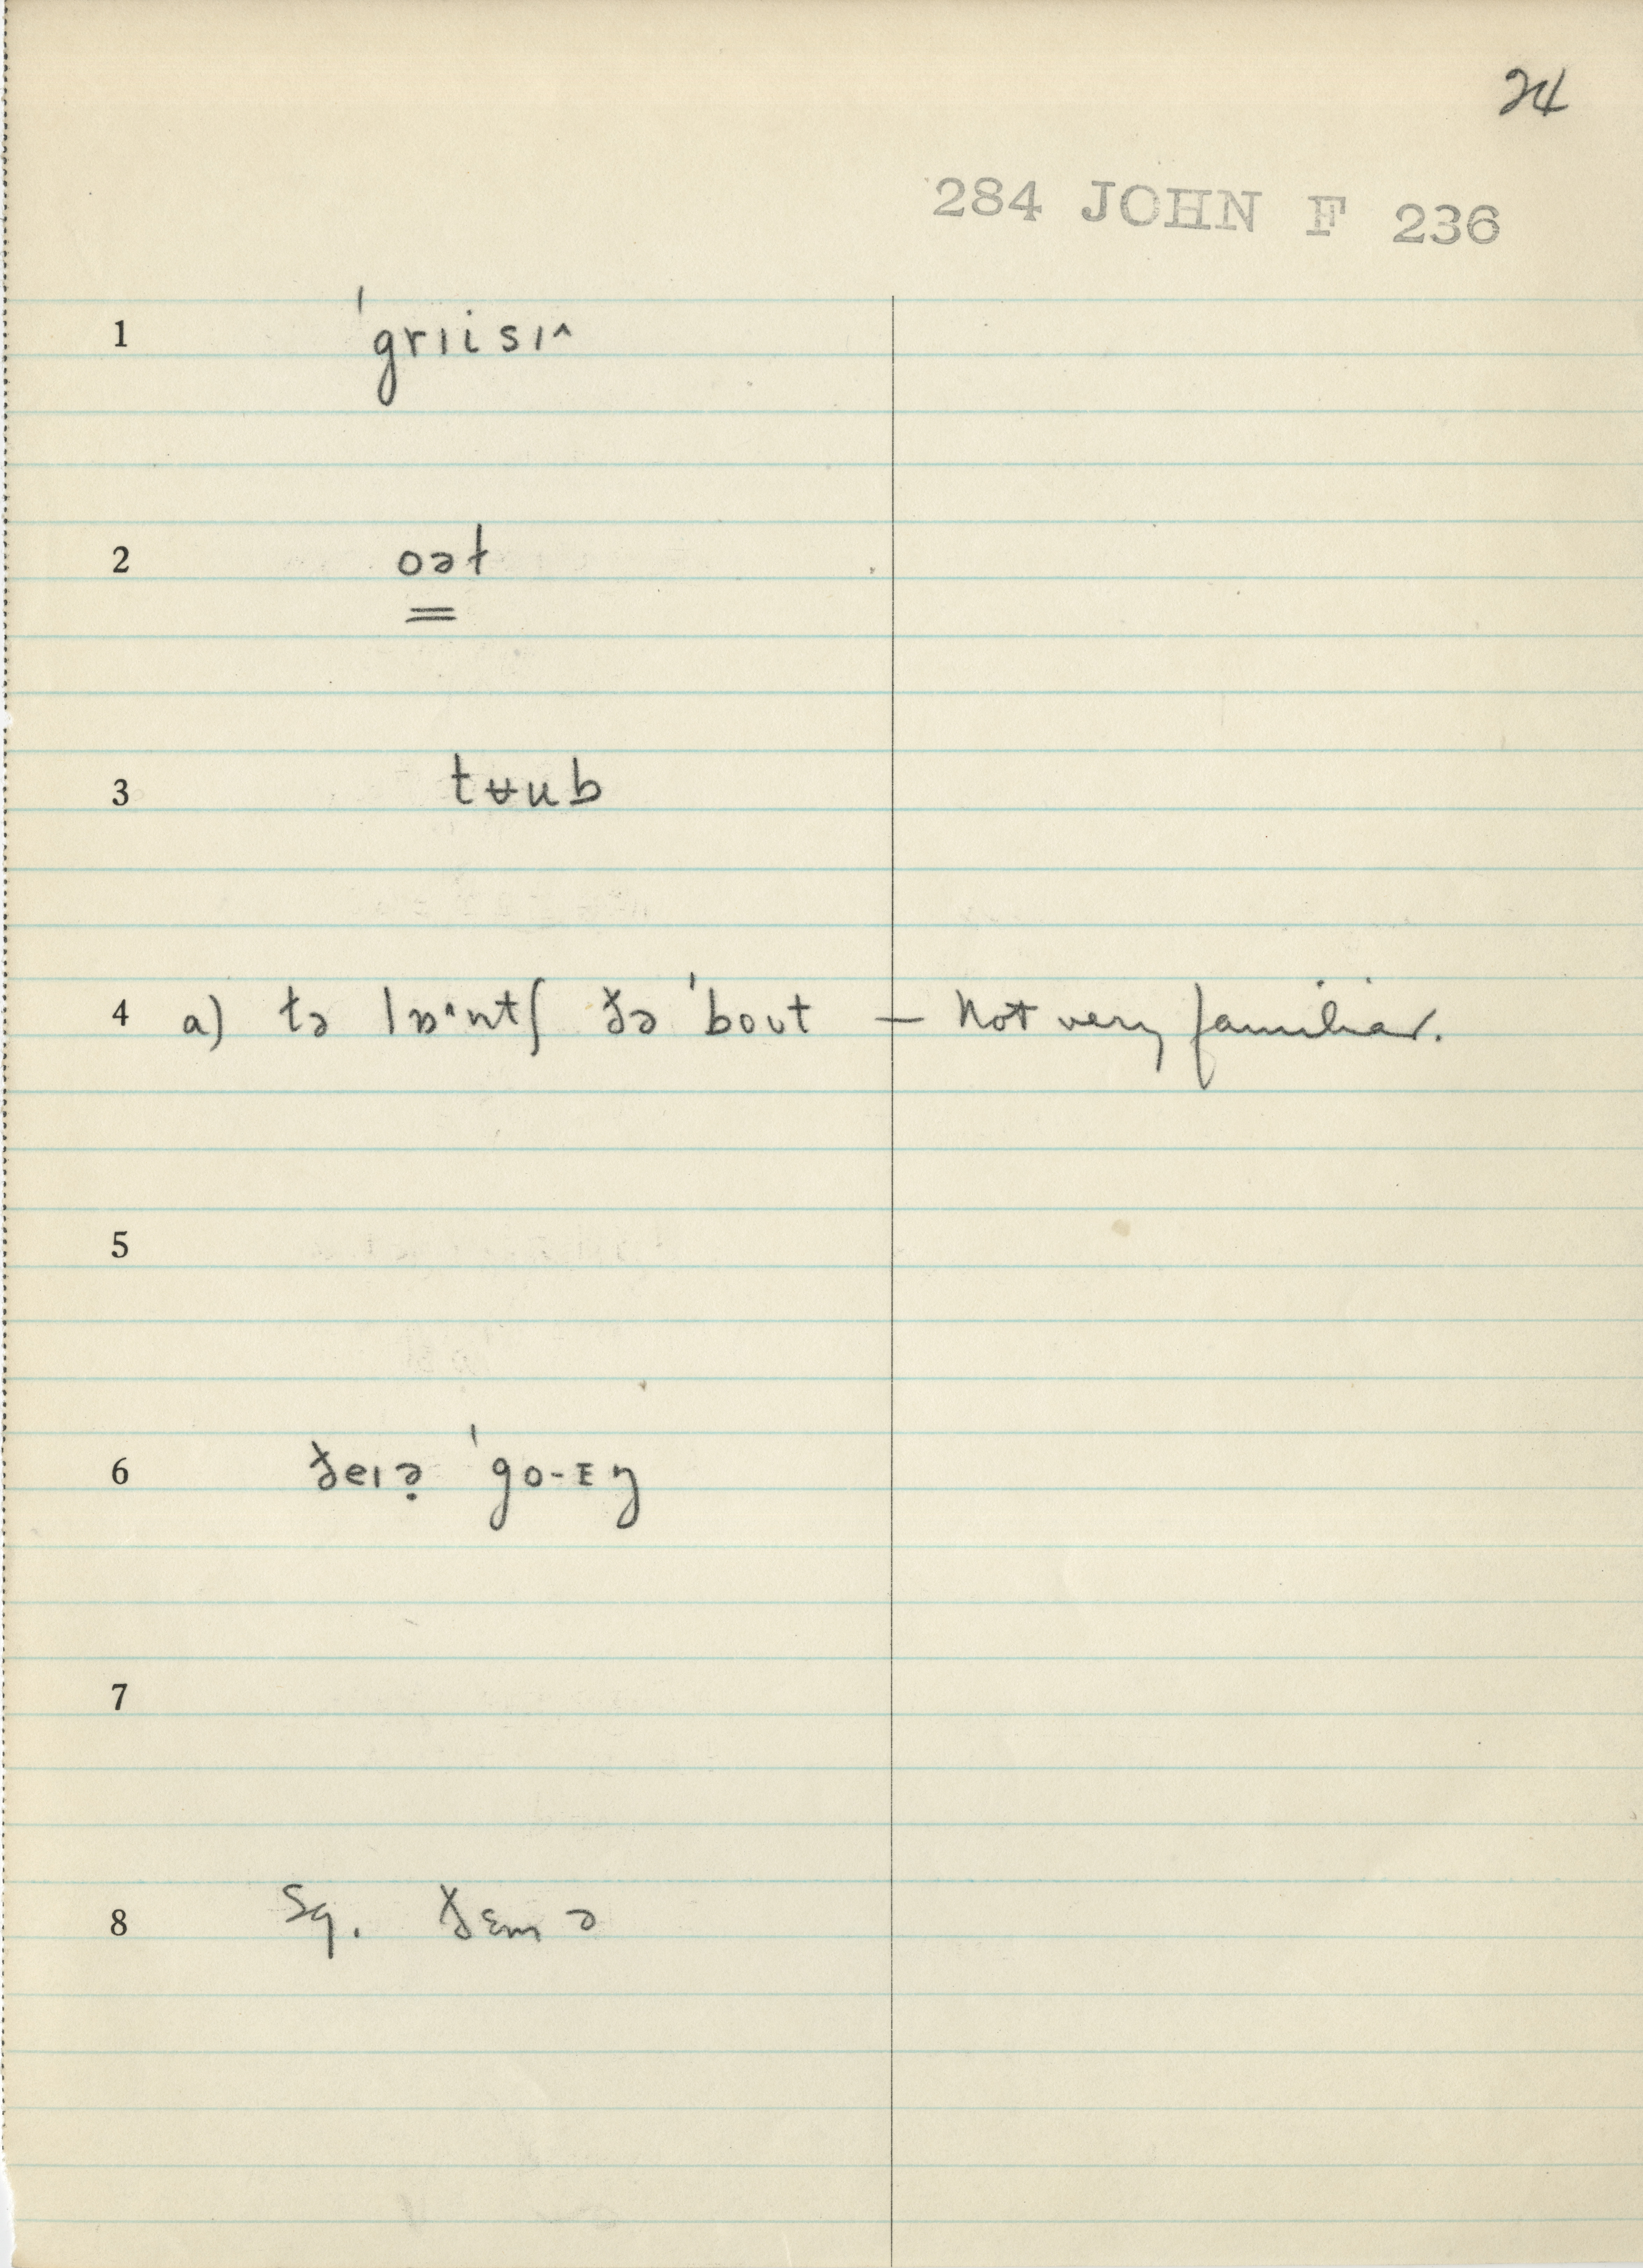 24
284 JOHN F 236
1 ˈgrɪisɪ^
2 oəɫ
3 tʉub
4 a) tə lɒ^ntʃ ðə ˈbout — Not very familiar.
5
6 ðeɪə̣ ˈgo-ɪŋ
7
8 Sq. ðɛm ə